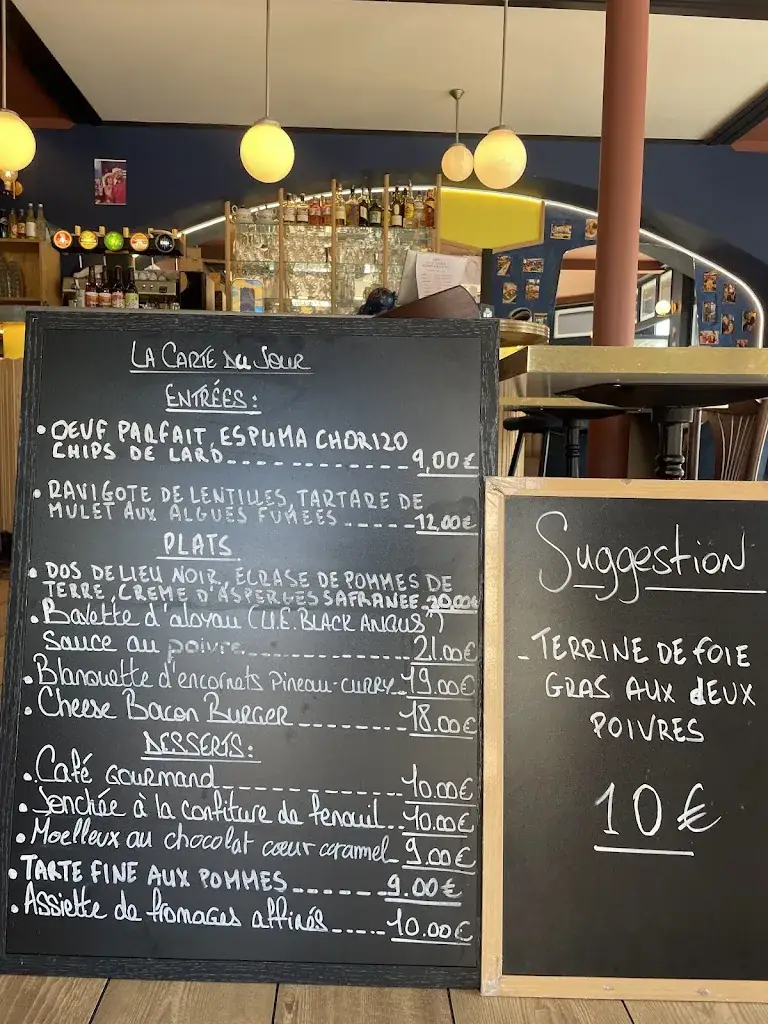 LA CARTE DU JOUR
ENTRÉES:
• OEUF PARFAIT, ESPUMA CHORIZO
CHIPS DE LARD 9,00€
• RAVIGOTE DE LENTILLES, TARTARE DE
MULET AUX ALGUES FUMÉES 12,00€
PLATS
• DOS DE LIEU NOIR, ECRASE DE POMMES DE
TERRE, CREME D'ASPERGES SAFRANEE 20.00€
• Bavette d'aloyau (U.E. BLACK ANGUS")
sauce au poivre 21.00€
• Blanquette d'encornets Pineau-curry 19.00€
• Cheese Bacon Burger 18.00€
DESSERTS:
• Café Gourmand 10.00€
• Jonchée à la confiture de fenouil 10.00€
• Moelleux au chocolat cœur caramel 9.00€
• TARTE FINE AUX POMMES 9.00€
• Assiette de fromages affinés 10.00€
Suggestion
- TERRINE DE FOIE
GRAS AUX DEUX
POIVRES
10€